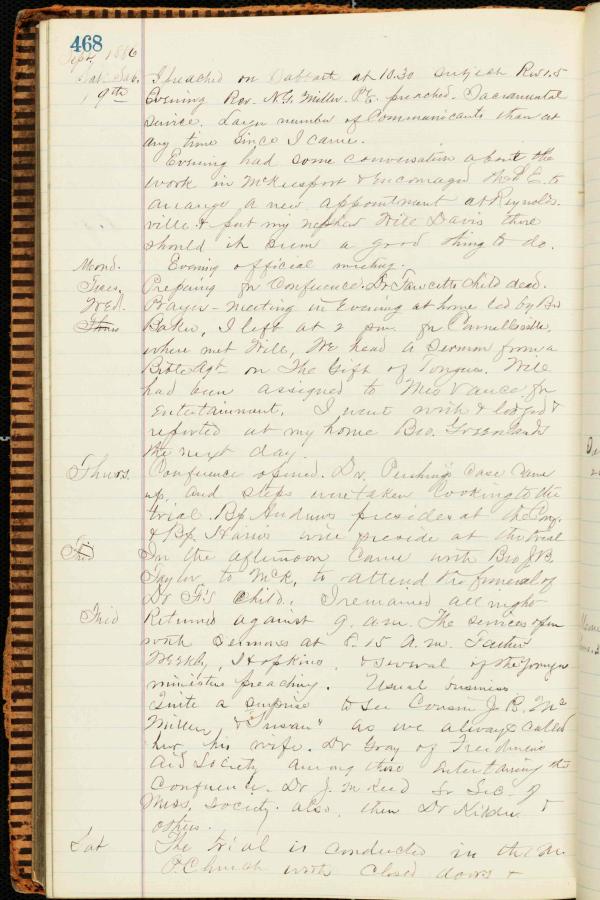 468
Sept. 1886
Sab. I preached on Sabbath at 10.30 subject Rev 1.5
19th Evening Rev. N.G. Miller. P.E. preached. Sacramental
Service. Larger number of Communicants than at
any time since I came.
Evening had some conversation about the
work in McKeesport & encouraged the P.E. to
arrange a new appointment at Reynolds-
ville. & put my nephew Will Davis there
should it seem a good thing to do.
Mond. Evening official meeting.
Tues. Preparing for Conference. Dr Fawcetts Child dead.
Wed. Prayer-meeting in Evening at home led by Bro
Thurs Baker, I left at 2 pm. for Connellsville,
where met Will, We heard a Sermon from a
Bible Agt on The Gift of Tongues. Will
had been assigned to Mrs Vance for
Entertainment. I went with & lodged &
reported at my home Bro. Greenlands
the next day.
Thurs. Conference opened. Dr. Pershing's Case came
up, and steps were taken looking to the
trial. Bp. Andrews presides at the Conf.
& Bp. Harris will preside at the trial
In the afternoon came with Bro J.B.
Taylor, to McK, to attend the funeral of
Dr F's Child. I remained all night
Frid Returned against 9. a.m. The services open
with Sermons at 8.15 A.m. Father
, Hopkins, & several of the younger
ministers preaching. Usual business
Quite a surprise to see Cousin J. B. Mc
Miller & "Susan" as we always called
her, his wife. Dr Gray of Freedmens
Aid Society among those entertaining the
Conference. Dr. J. M Reid Sr Sec. of
Miss. Society. also, then Dr Kidder &
others.
Sat The trial is conducted in the M.
P. Church with closed doors &